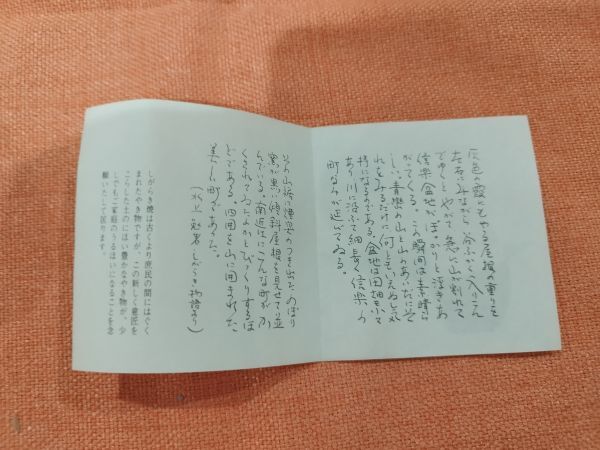 灰色の霞にもやる屋根の重りを
左右にみながら、谷ふかく入りこん
でゆくと、やがて、急に山が割れて
信楽盆地がぽっかりと浮きあ
がってくる。この瞬間は素晴ら
しい。青い山と山のあいだに
れをみるだけに何ともいえぬ気
持になるのである。盆地は田畑が
あり川に沿って細長く信楽の
町なみが延びている。
その山裾に煙突のつき出た、のぼり
窯が黒い傾斜屋根を見せて並
んでいる。南近江にこんな町が、か
くされていたかとびっくりするほ
どである。四囲を山に囲まれた、
美しい町であった。
（水上勉著・しがらき物語より）
しがらき焼は古くより庶民の間にはぐく
まれたやき物ですが、この新しく意匠を
こらした土のにほい豊かなやき物が、少
しでもご家庭のうるほいになることを念
願いたして居ります。